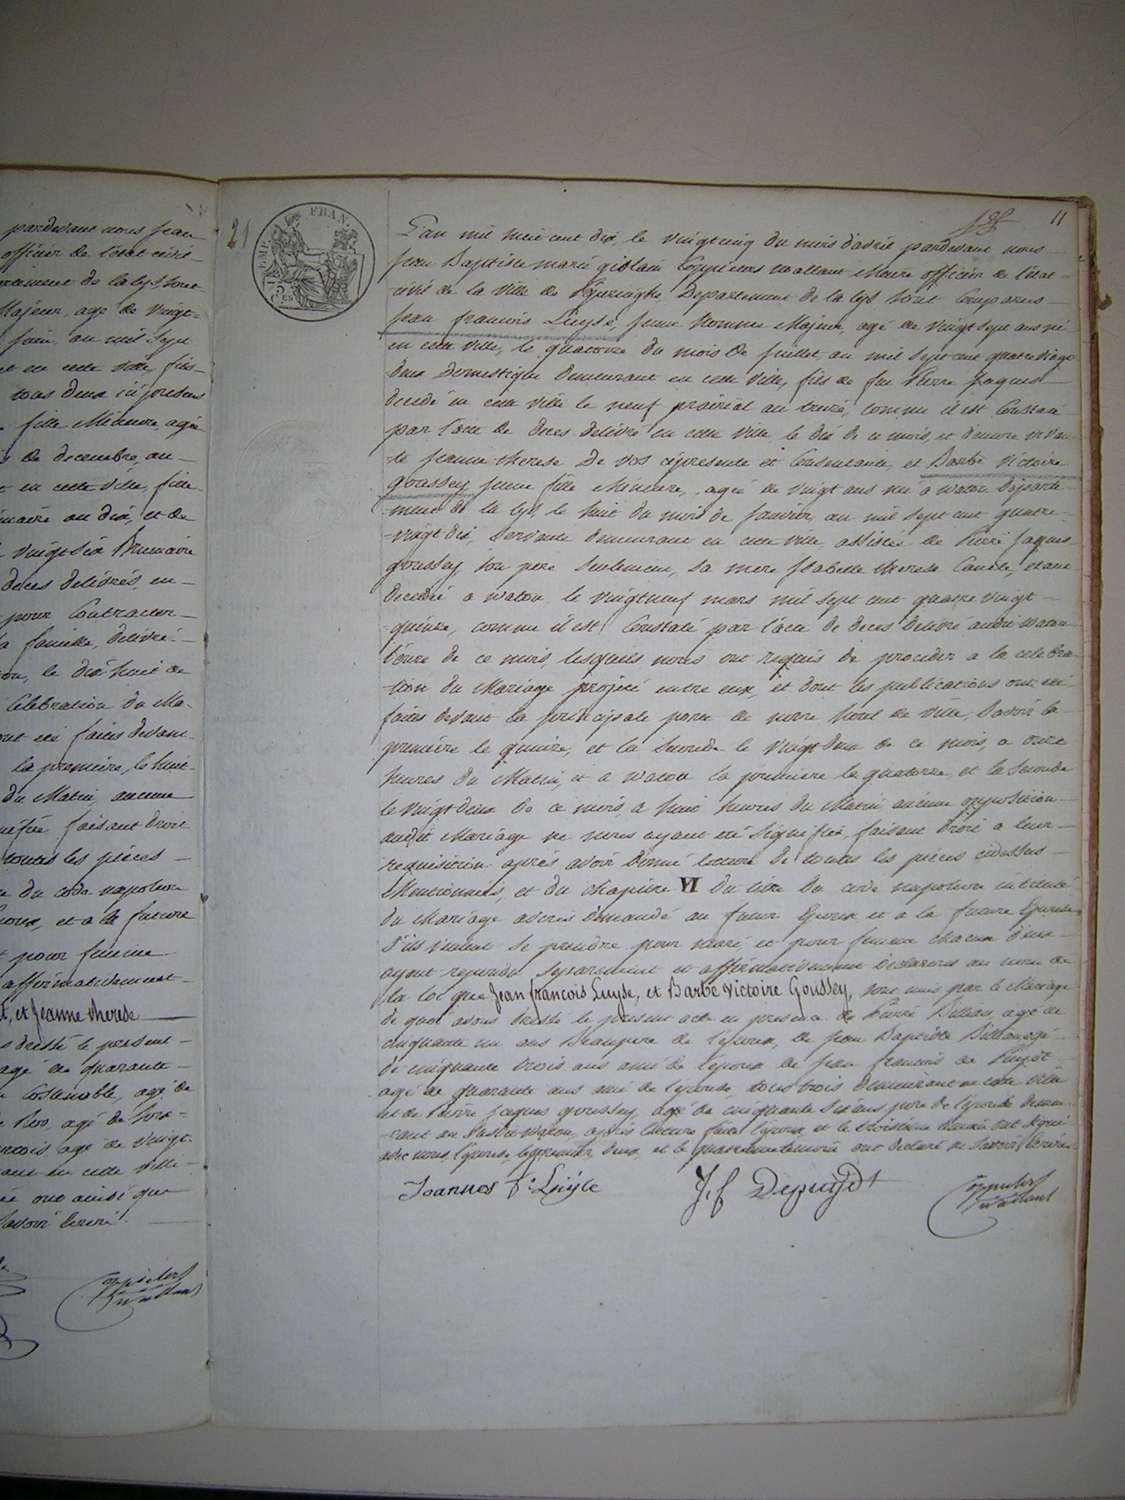 pardevant nous Jean
officier de l'état civil
Majeur, agé de vingt
juin an mil sept
et en cette ville fils
tous deux ici présens
fille Mineure agée
de decembre, an
en cette ville, fille
an dix, et de
vingt six Brumaire
deces delivrés, en
pour Contracter
famille, delivré
le dix huit de
Célébration du Ma-
été faites devant
la première, le huit
du Matin, aucune
faisant droit
toutes les pièces
du code napoleon
Epoux, et a la future
pour femme
affirmativement
et Jeanne therese
dressé le present
agé de quarante
Costenoble, agé de
agé de vingt
en cette ville
ainsi que
savoir Ecrire.
21
EMP. FRAN.
75 CES
11
L'an mil huit cent dix, le vingt cinq du mois d'avril pardevant nous
Jean Baptiste marie gislain Coppieters wallant Maire officier de l'état
civil de la ville de Poperinghe, Departement de la Lys sont Comparus
Jean francois Luyse, jeune homme Majeur, agé de vingt sept ans né
en cette ville, le quatorze du mois de Juillet an mil sept cent quatre vingt
deux Domestique demeurant en cette ville, fils de feu Pierre Jaques
decedé en cette ville le neuf prairial an treize, comme il est Constaté
par l'acte de deces delivré en cette ville le dix de ce mois, et d'encore vivan-
te Jeanne therese De vos ci presente et Consentante, et Barbe Victoire
Goussey jeune fille Mineure, agée de vingt ans née a watou Departe-
ment de la Lys le huit du mois de Janvier, an mil sept cent quatre-
vingt dix, Servante demeurant en cette ville assistée de Pierre Jaques
Goussey son pere seulement, sa mere Isabelle therese etant
Decedée a watou le vingt neuf mars mil sept cent quatre vingt
quinze, comme il est Constaté par l'acte de deces delivré audit watou
de ce mois, lesquels nous ont requis de proceder a la celebra-
tion du Mariage projeté entre eux, et dont les publications ont été
faites devant la principale porte de notre hotel de ville, Savoir la
première le quinze, et la seconde le vingt deux de ce mois, a onze
heures du Matin, et a watou la première le quatorze, et la seconde
le vingt deux de ce mois, a huit heures du Matin aucune opposition
audit Mariage ne nous ayant été signifiée faisant droit a leur
requisition après avoir donné lecture de toutes les pièces cidessus
Mentionnées, et du chapitre VI du titre du code napoleon intitulé
du Mariage avons demandé au futur Epoux et a la future Epouse
s'ils veulent se prendre pour mari et pour femme chacun d'eux
ayant repondu separement et affirmativement Declarons au nom de
la loi que Jean francois Luyse, et Barbe Victoire Goussey, sont unis par le Mariage
de quoi avons dressé le present acte en presence de Pierre Billiau, agé de
cinquante un ans Beaupere de l'epoux, de Jean Baptiste agé
de cinquante trois ans ami de l'epoux de Jean francois de Puydt
agé de quarante ans ami de l'epouse, tous trois demeurant en cette ville
et de Pierre Jaques Goussey, agé de cinquante six ans pere de l'epouse demeu-
rant au susdit watou, après lecture faite l'epoux, et le troisieme témoin ont signé
avec nous, l'epouse, le premier deux, et le quatrieme témoin ont declaré ne savoir Ecrire.
Joannes f: Luyse
J, f Depuydt
Coppieters
Wallant
Coppieters
Wallant